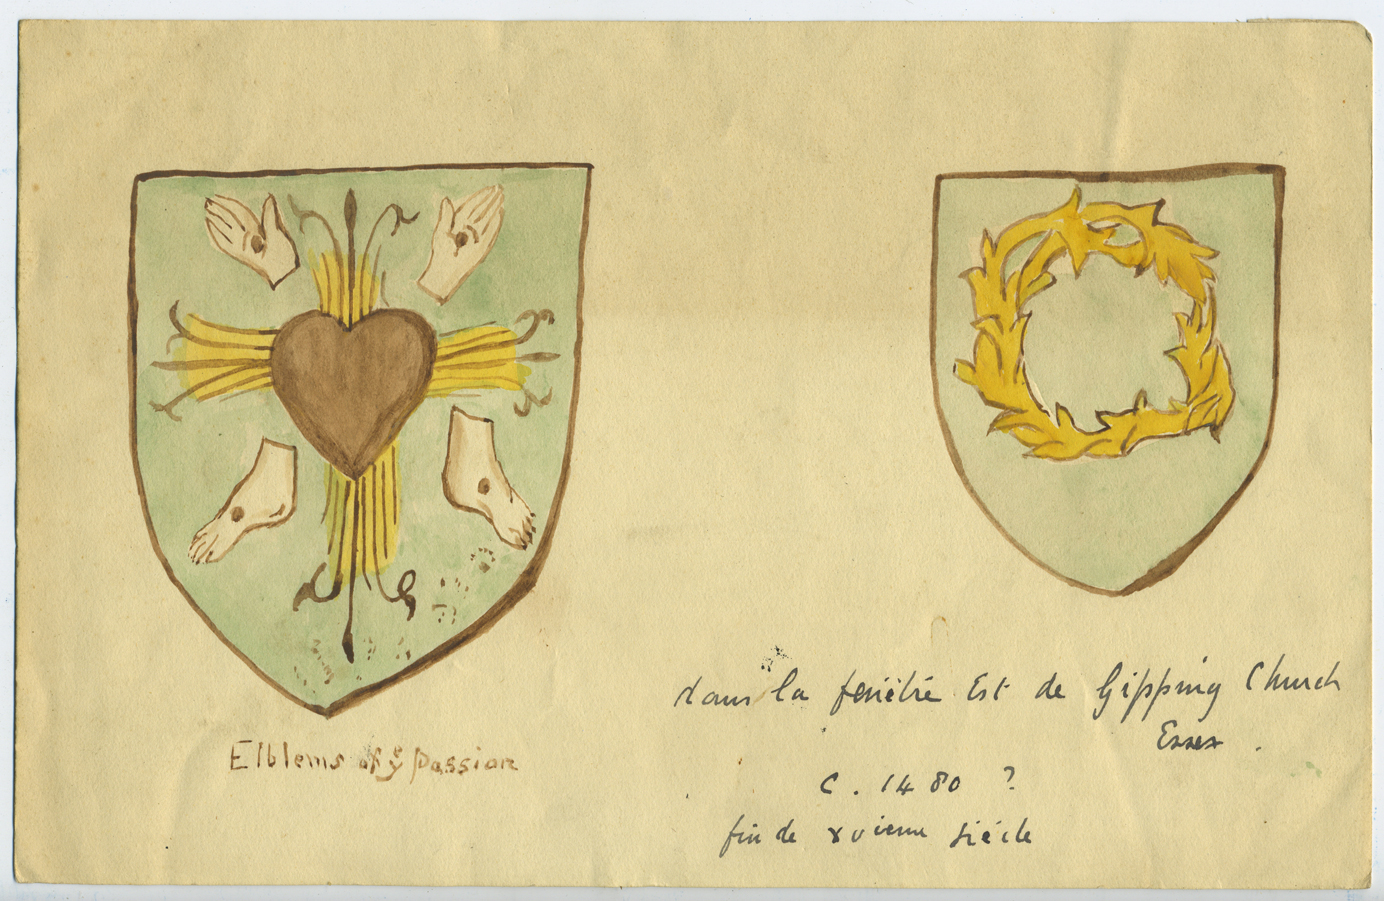 Elblems of yᵉ passion
dans la fenêtre Est de Gipping Church
Essex .
C. 1480 ?
fin de xvieme siécle